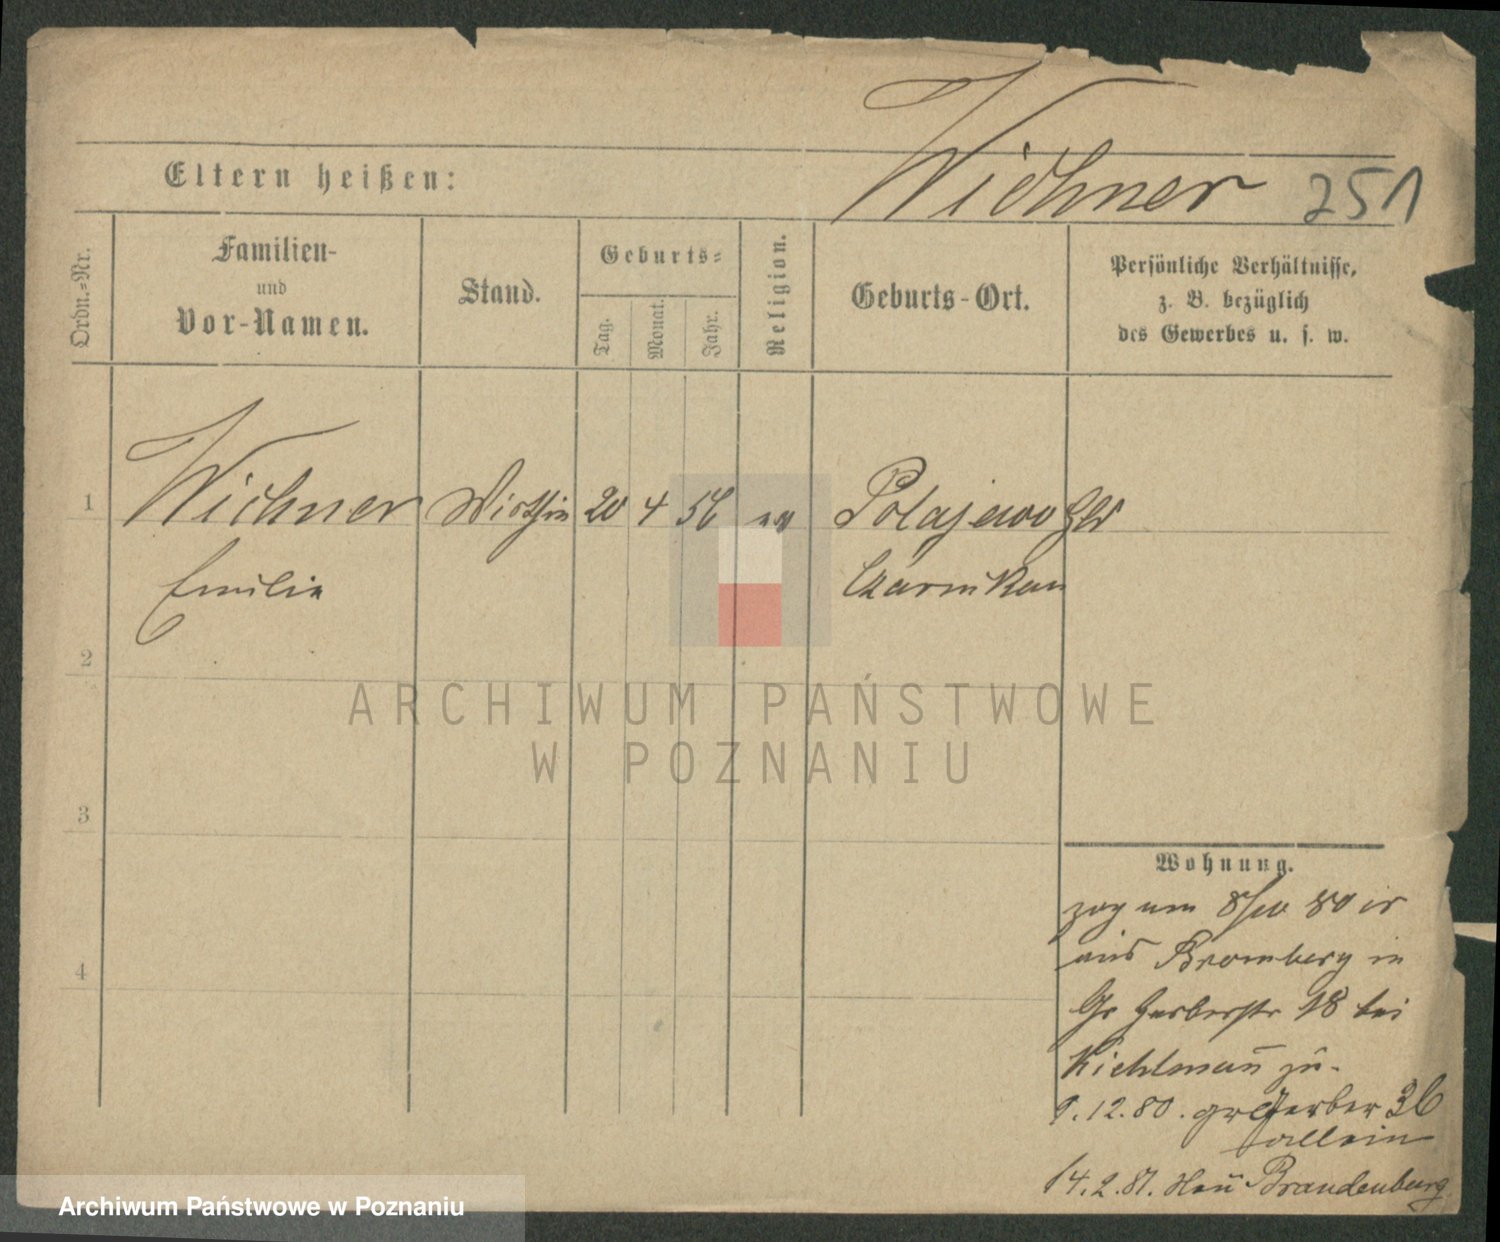 Wichner 251
Eltern heißen:
Ordn.-Nr.
Familien-
und
Vor-Namen.
Stand.
Geburts-
Tag.
Monat.
Jahr.
Religion.
Geburts-Ort.
Persönliche Verhältnisse,
z. B. bezüglich
des Gewerbes u. s. w.
1 Wichner 20 4 56 ev Polajewo
Emilie Czarnikau
2
ARCHIWUM PAŃSTWOWE
W POZNANIU
3
Wohnung.
zog am 80
aus Bromberg in
Gr Gerberstr 18 bei
zu.
9.12.80. gr Gerber 36
allein
14.2.81. Brandenburg
4
Archiwum Państwowe w Poznaniu